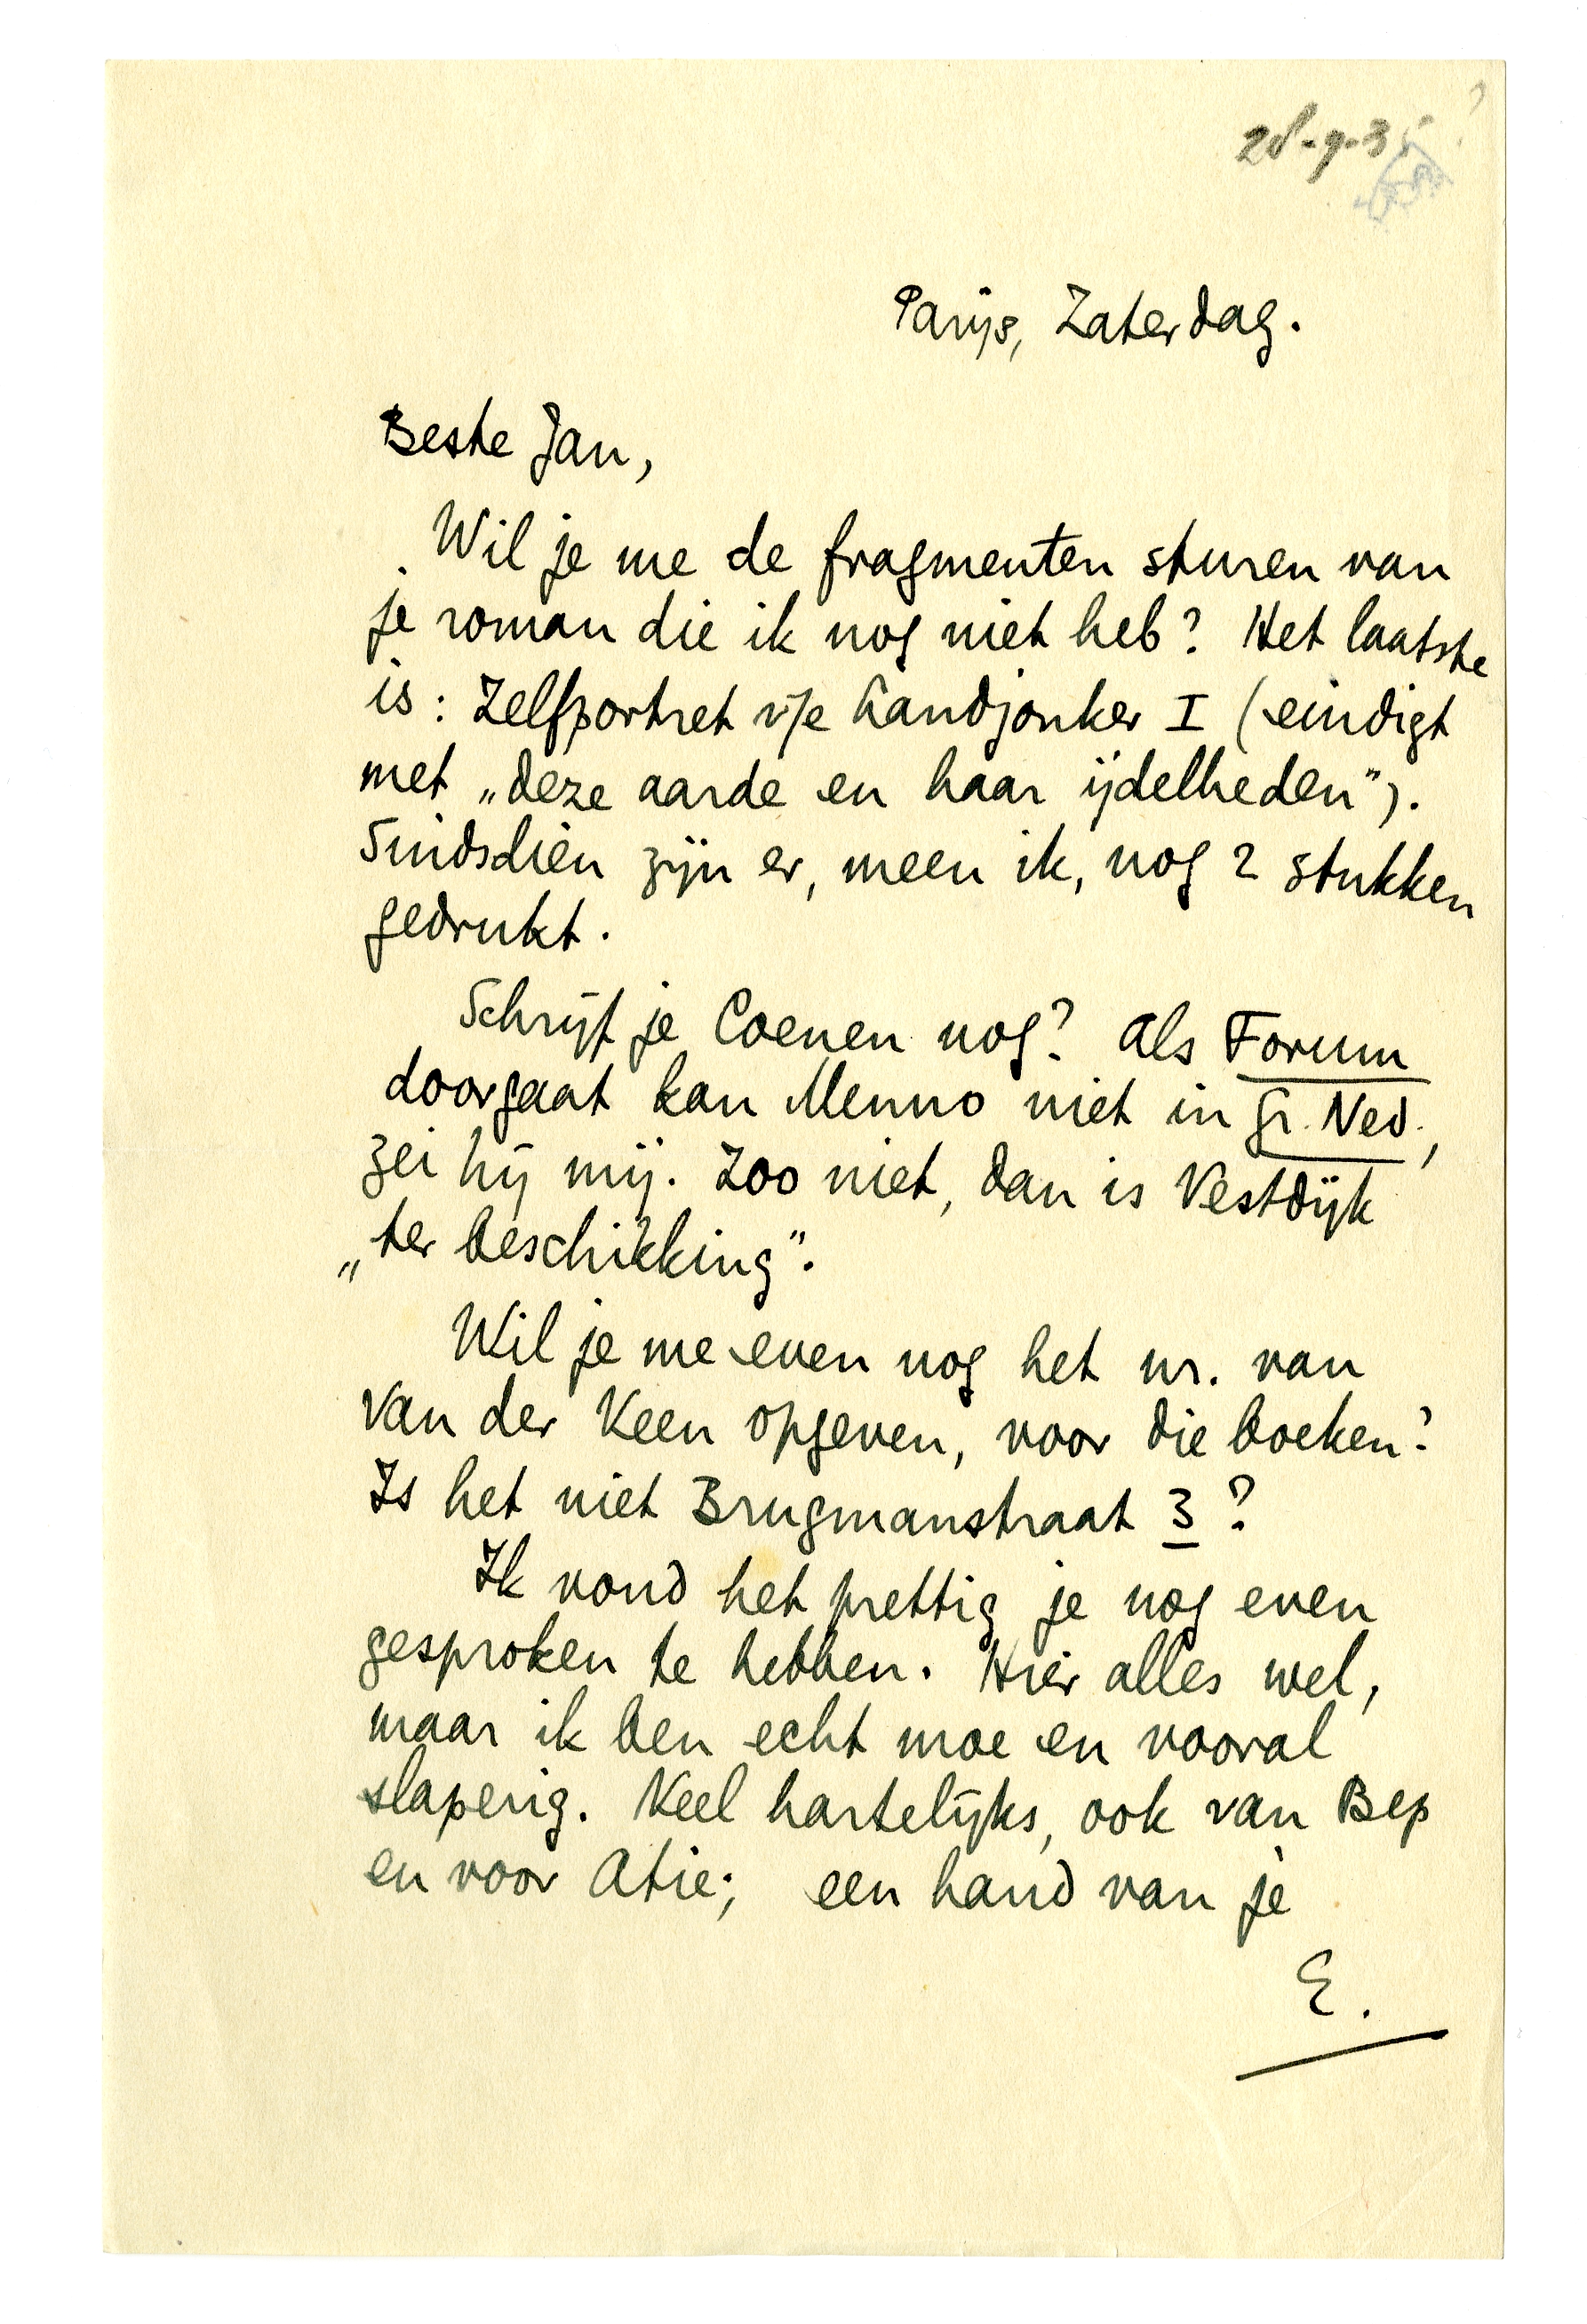 28-9-35 ?
Parijs, Zaterdag.
Beste Jan,
Wil je me de fragmenten sturen van
je roman die ik nog niet heb? Het laatste
is: Zelfportret v/e Landjonker I (eindigt
met „deze aarde en haar ijdelheden").
Sindsdien zijn er, meen ik, nog 2 stukken
gedrukt.
Schrijf je Coenen nog? Als Forum
doorgaat kan Menno niet in Gr. Ned.,
zei hij mij. Zoo niet, dan is Vestdijk
„ter beschikking".
Wil je me even nog het nr. van
Van der Veen opgeven, voor die boeken?
Is het niet Brugmanstraat 3?
Ik vond het prettig je nog even
gesproken te hebben. Hier alles wel,
maar ik ben echt moe en vooral
slaperig. Veel hartelijks, ook van Bep
en voor Atie; een hand van je
E.